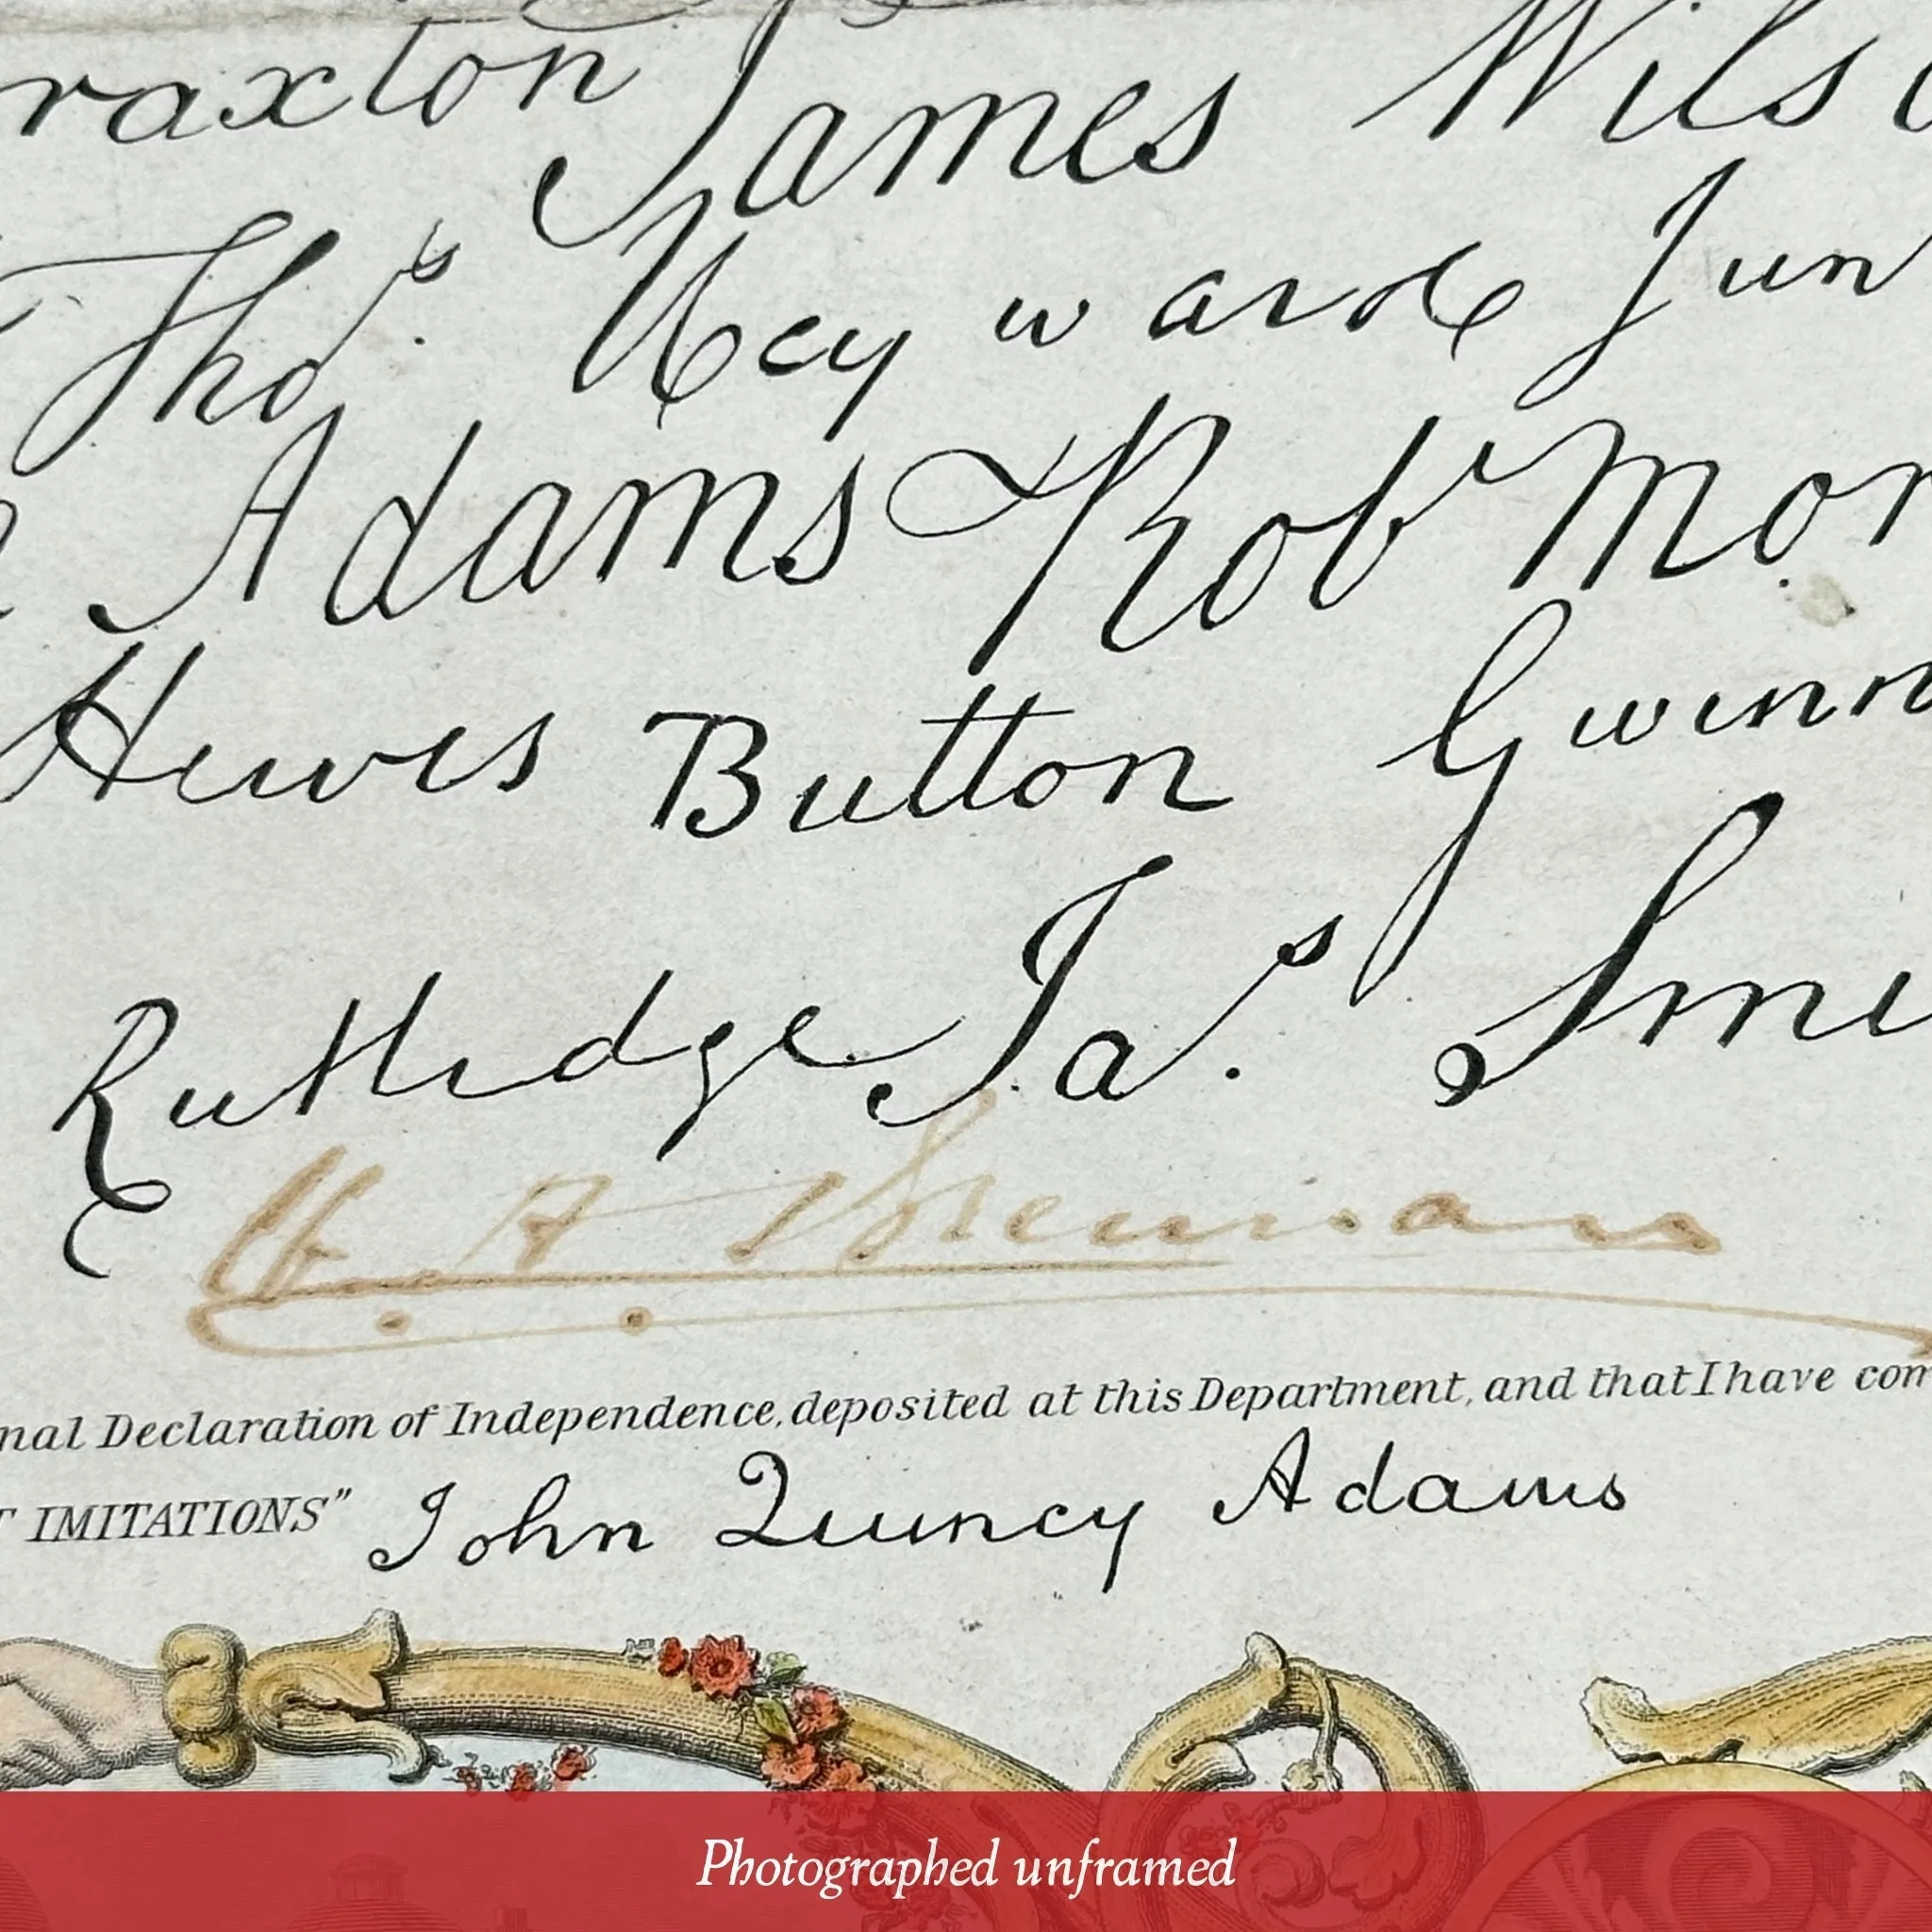 raxton James Wils
Tho.s Heyward Jun
Adams Rob Mor
Hewes Button Gwinn
Rutledge Ja.s Smi
nal Declaration of Independence, deposited at this Department, and that I have com
T IMITATIONS" John Quincy Adams
Photographed unframed